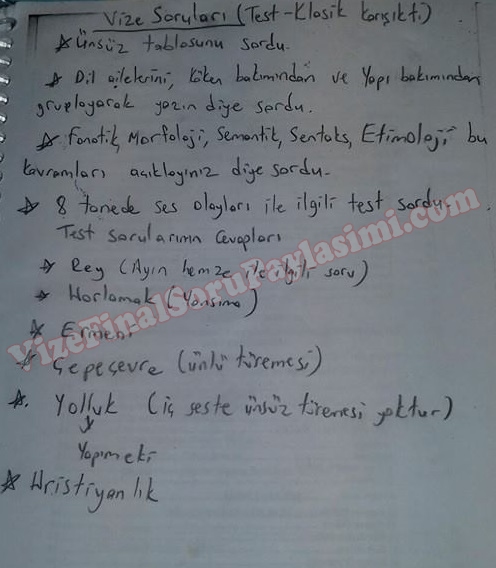 Vize Soruları (Test-Klasik karışıktı)
☆ Ünsüz tablosunu sordu.
☆ Dil ailelerini, köken bakımından ve Yapı bakımından
gruplayarak yazın diye sordu.
☆ Fonotik, Morfoloji, Semantik, Sentaks, Etimoloji bu
kavramları açıklayınız diye sordu.
☆ 8 tanede ses olayları ile ilgili test sordu.
Test sorularının Cevapları
☆ Rey (Ayın hemze ile ilgili soru)
☆ Horlamak (Yansıma)
☆ Ermeni
☆ Çepeçevre (ünlü türemesi)
☆. Yolluk (iç seste ünsüz türemesi yoktur)
Yapımeki
☆ Hristiyanlık
VizeFinalSoruPaylasimi.com